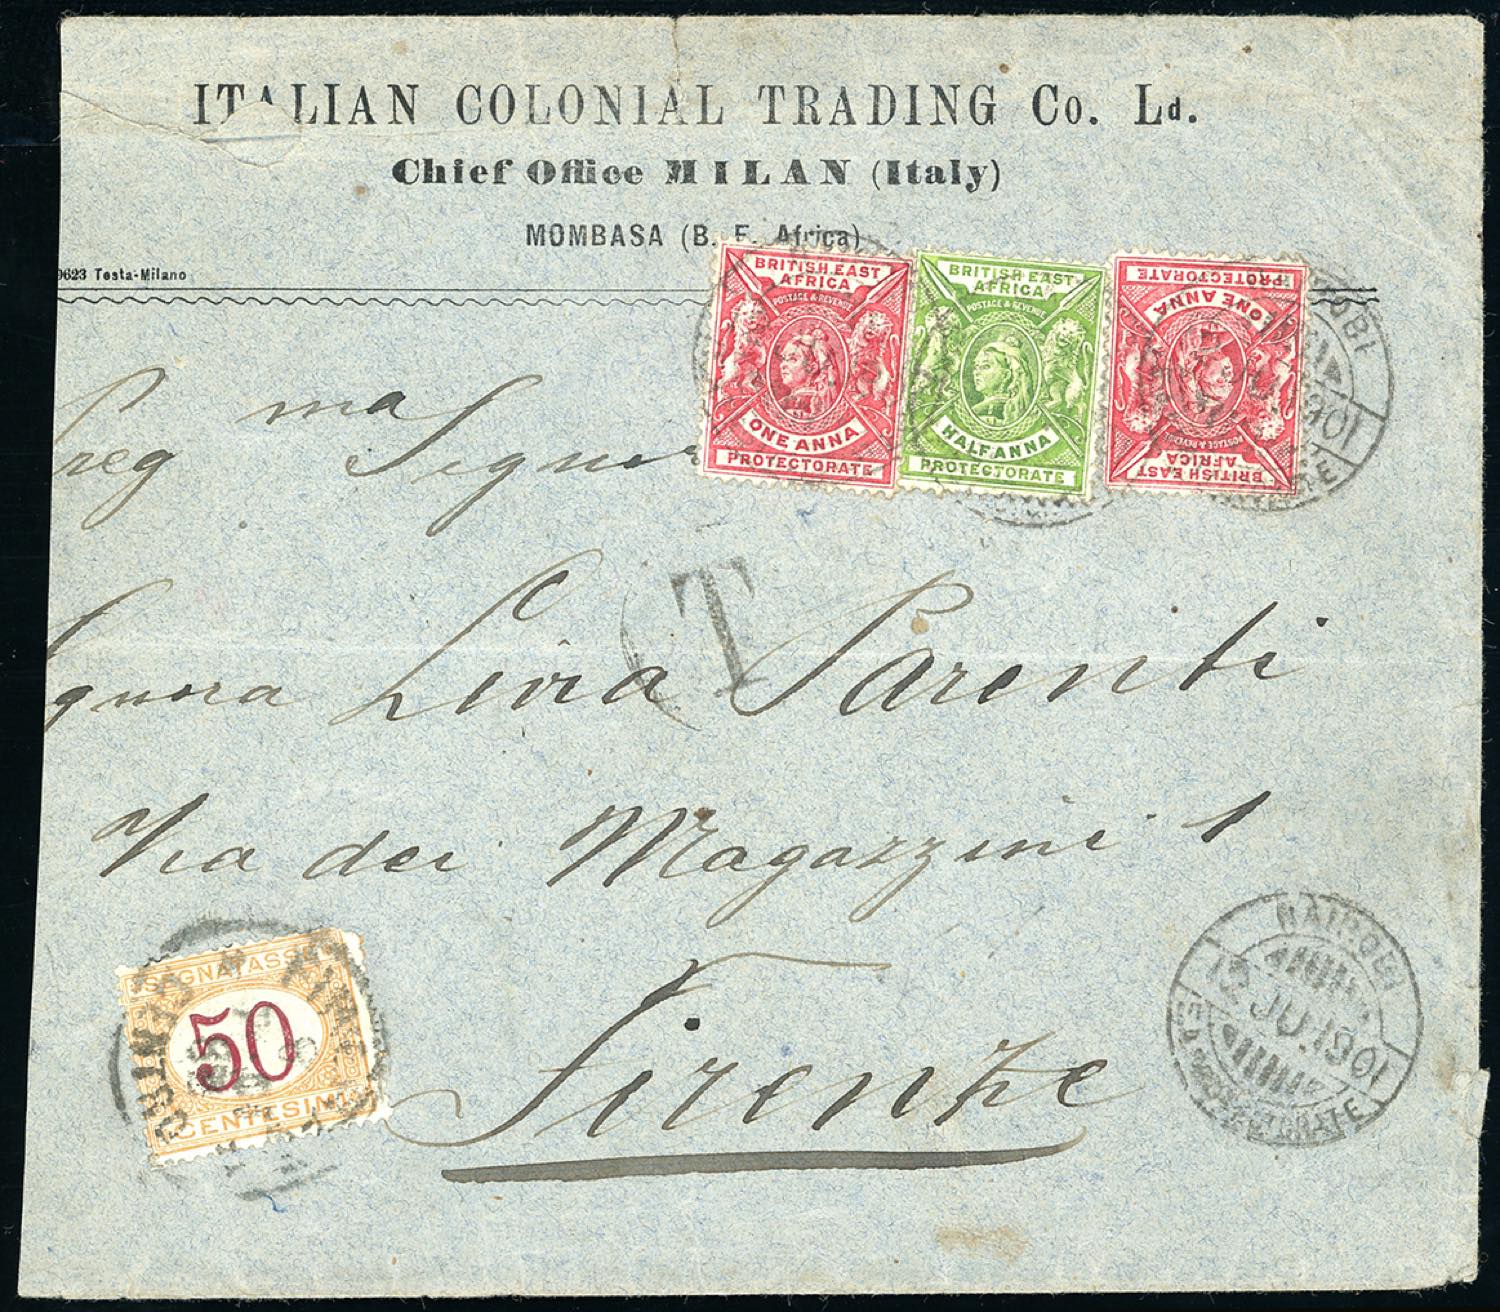 ITALIAN COLONIAL TRADING Co. Ld.
Chief Office MILAN (Italy)
MOMBASA (B. E. Africa)
9623 Testa-Milano
BRITISH EAST
AFRICA
POSTAGE & REVENUE
ONE ANNA
PROTECTORATE
BRITISH EAST
AFRICA
POSTAGE & REVENUE
HALF ANNA
PROTECTORATE
BRITISH EAST
AFRICA
POSTAGE & REVENUE
ONE ANNA
PROTECTORATE
OBI
1901
reg ma Signor
gnora Livia Parenti
T
Via dei Magazzini 1
Firenze
SEGNATASSE
50
CENTESIMI
CENTRO
NAIROBI
12 JU 1901
PROTECTORATE